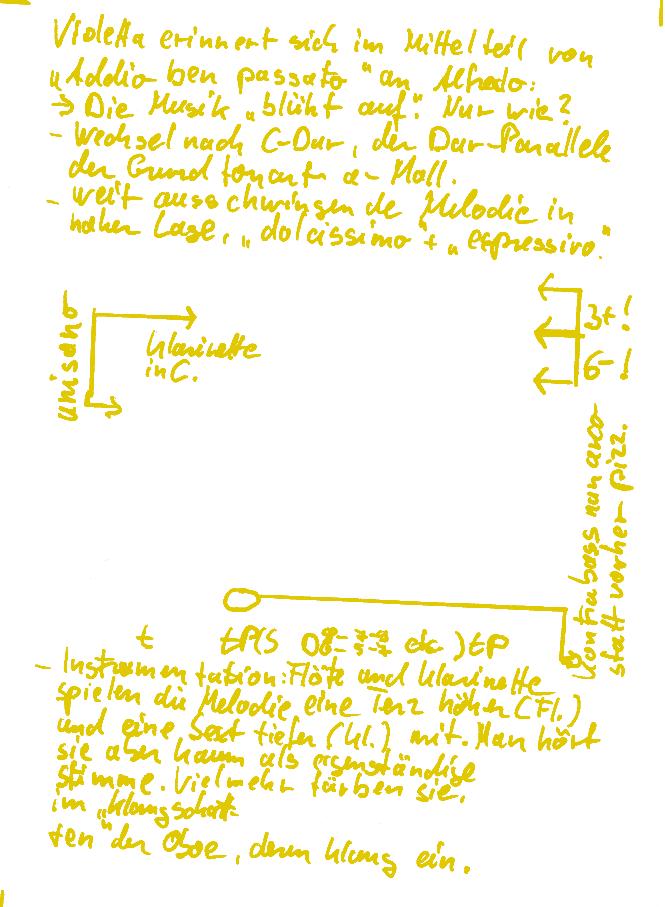 Violetta erinnert sich im Mittelteil von
„Addio ben passato" an Alfredo:
→ Die Musik „blüht auf". Nur wie?
- Wechsel nach C-Dur, der Dur-Parallele
der Grundtonart a-Moll.
- weit ausschwingende Melodie in
hoher Lage, „dolcissimo" + „espressivo."
unisono
Klarinette
in C.
3+!
6-!
Kontrabass nun arco
statt vorher pizz.
t tP(S D 8-7-8 etc )tP
- Instrumentation: Flöte und Klarinette
spielen die Melodie eine Terz höher (Fl.)
und eine Sext tiefer (Kl.) mit. Man hört
sie aber kaum als eigenständige
Stimme. Vielmehr färben sie,
im „Klangschat-
ten" der Oboe, deren Klang ein.